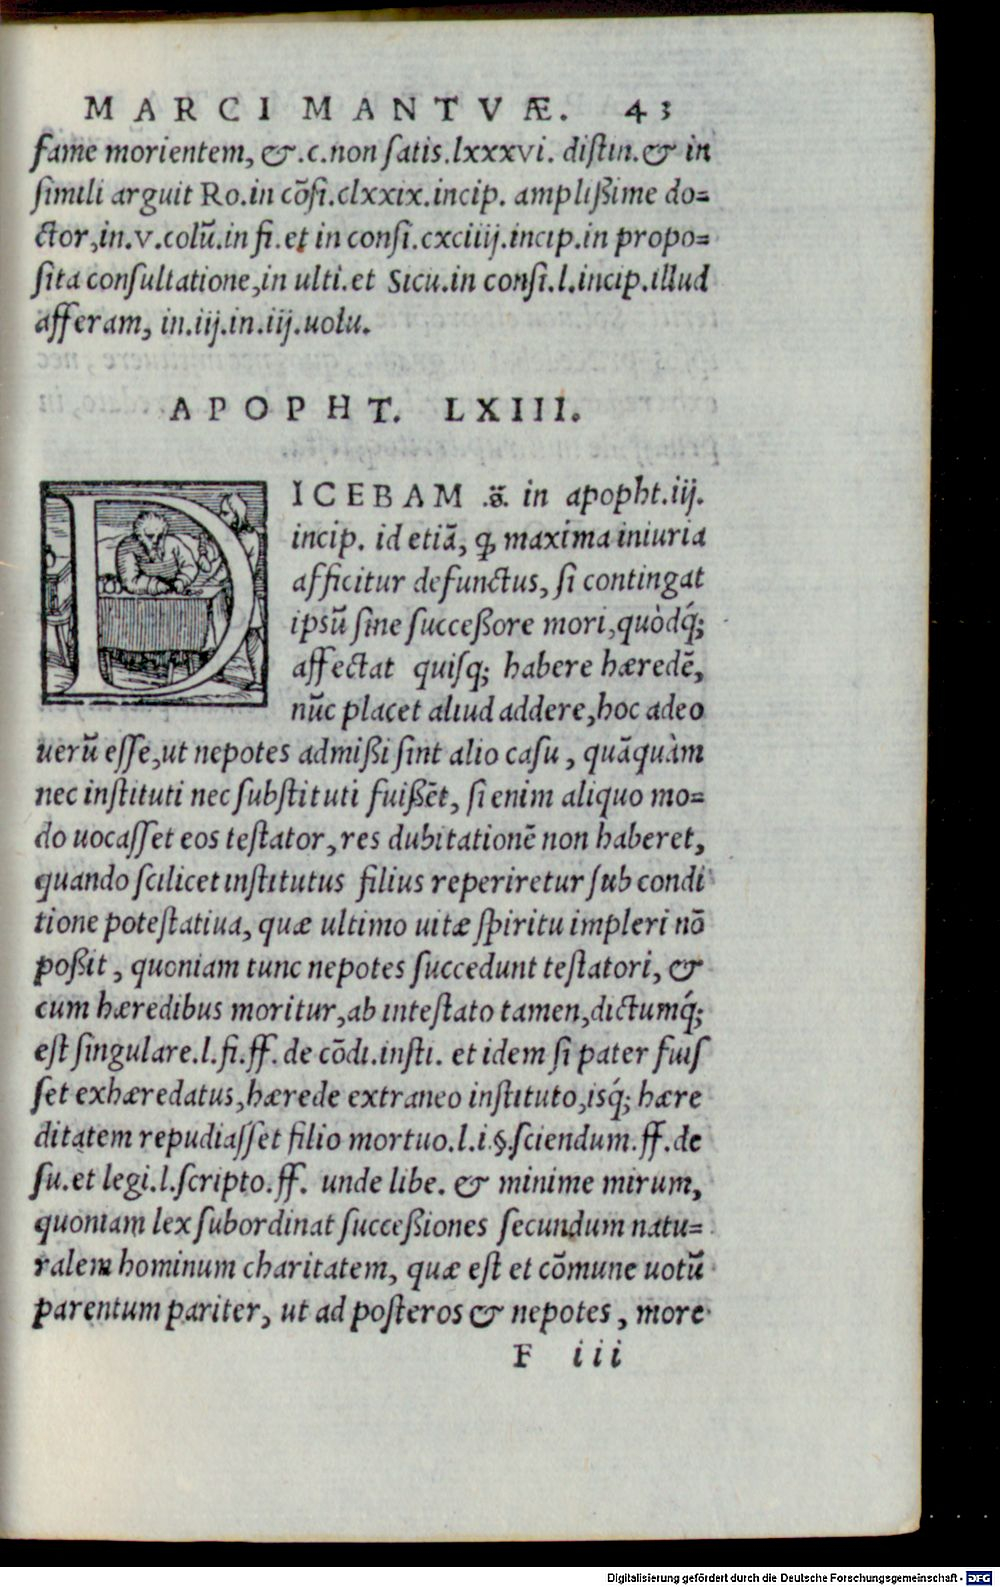 MARCI MANTVÆ. 43
fame morientem, &.c.non ſatis.lxxxvi. diſtin.& in
ſimili arguit Ro.in cõſi.clxxix.incip. ampliſſime do=
ctor,in.v.colũ.in fi.et in conſi.cxciiij.incip.in propo=
ſita conſultatione,in ulti.et Sicu.in conſi.l.incip.illud
afferam, in.iij.in.iij.uolu.
APOPHT. LXIII.
DICEBAM .ã. in apopht.iij.
incip. id etiã, ꝙ maxima iniuria
afficitur defunctus, ſi contingat
ipſũ ſine ſucceſſore mori,quòdq́;
affectat quiſq; habere hæredẽ,
nũc placet aliud addere,hoc adeo
uerũ eſſe,ut nepotes admiſſi ſint alio caſu, quãquàm
nec inſtituti nec ſubſtituti fuiſſẽt, ſi enim aliquo mo=
do uocaſſet eos teſtator,res dubitationẽ non haberet,
quando ſcilicet inſtitutus filius reperiretur ſub condi
tione poteſtatiua, quæ ultimo uitæ ſpiritu impleri nõ
poſſit, quoniam tunc nepotes ſuccedunt teſtatori, &
cum hæredibus moritur,ab inteſtato tamen,dictumq́;
eſt ſingulare.l.fi.ff. de cõdi.inſti. et idem ſi pater fuiſ
ſet exhæredatus,hærede extraneo inſtituto,isq́; hære
ditatem repudiaſſet filio mortuo.l.i.§.ſciendum.ff.de
ſu.et legi.l.ſcripto.ff. unde libe. & minime mirum,
quoniam lex ſubordinat ſucceſſiones ſecundum natu=
ralem hominum charitatem, quæ eſt et cõmune uotũ
parentum pariter, ut ad poſteros & nepotes, more
F iii
Digitalisierung gefördert durch die Deutsche Forschungsgemeinschaft - DFG